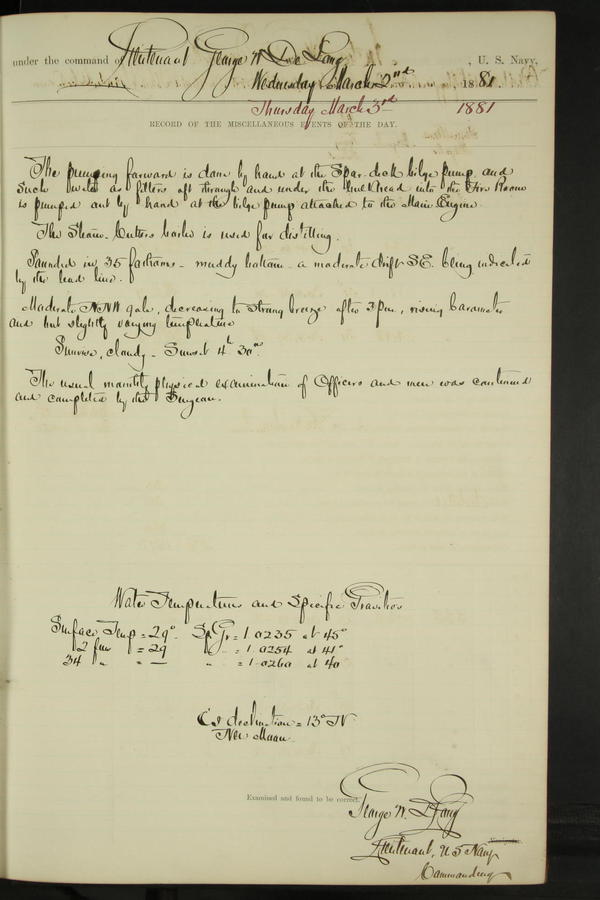 under the command of Lieutenant George W De Long, U. S. Navy,
Wednesday March 2nd, 1881.
Thursday March 3rd 1881
RECORD OF THE MISCELLANEOUS EVENTS OF THE DAY.
The pumping forward is done by hand at the Spar deck bilge pump, and
such water as filters aft through and under the bulkhead into the Fire Room
is pumped out by hand at the bilge pump attached to the Main Engine.
The Steam Cutters boiler is used for distilling.
Sounded in 35 fathoms - muddy bottom - a moderate drift SE. being indicated
by the lead line.
Moderate NNW gale, decreasing to strong breeze after 3 pm, rising barometer
and but slightly varying temperature
Sunrise, cloudy - Sunset 4h 30m.
The usual monthly physical examination of Officers and men was continued
and completed by the Surgeon.
Water Temperatures and Specific Gravities
Surface Temp = 29°. Sp Gr = 1.0235 at 45°
2 fms = 29 " = 1.0254 at 41°
34 " = — " = 1.0260 at 40
declination = 13° N
New Moon
Examined and found to be correct.
George W. De Long
Lieutenant, U S Navy
Navigator.
Commanding